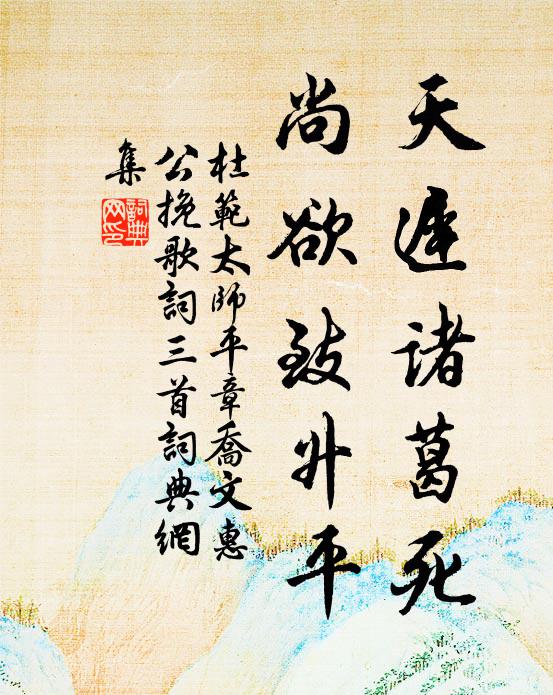 天遲諸葛死
尚欲致升平
杜範太師平章喬文惠
公挽歌詞三首詞典網
集
詞典
网印